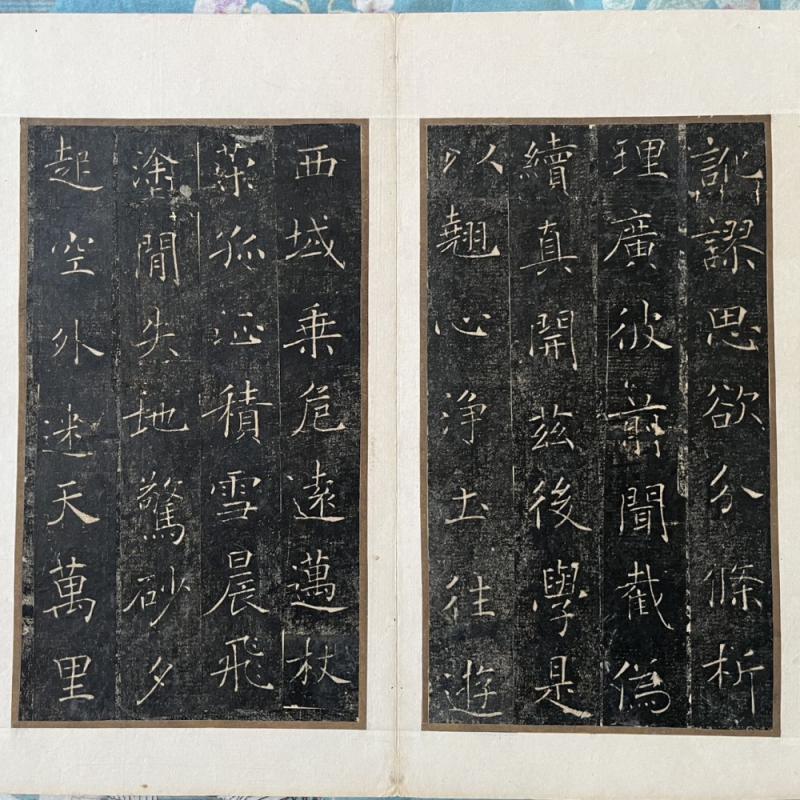 訛謬思欲分條析
理廣彼前聞截僞
續真開茲後學是
以翹心淨土往遊
西域乘危遠邁杖
策孤征積雪晨飛
塗閒失地驚砂夕
起空外迷天萬里